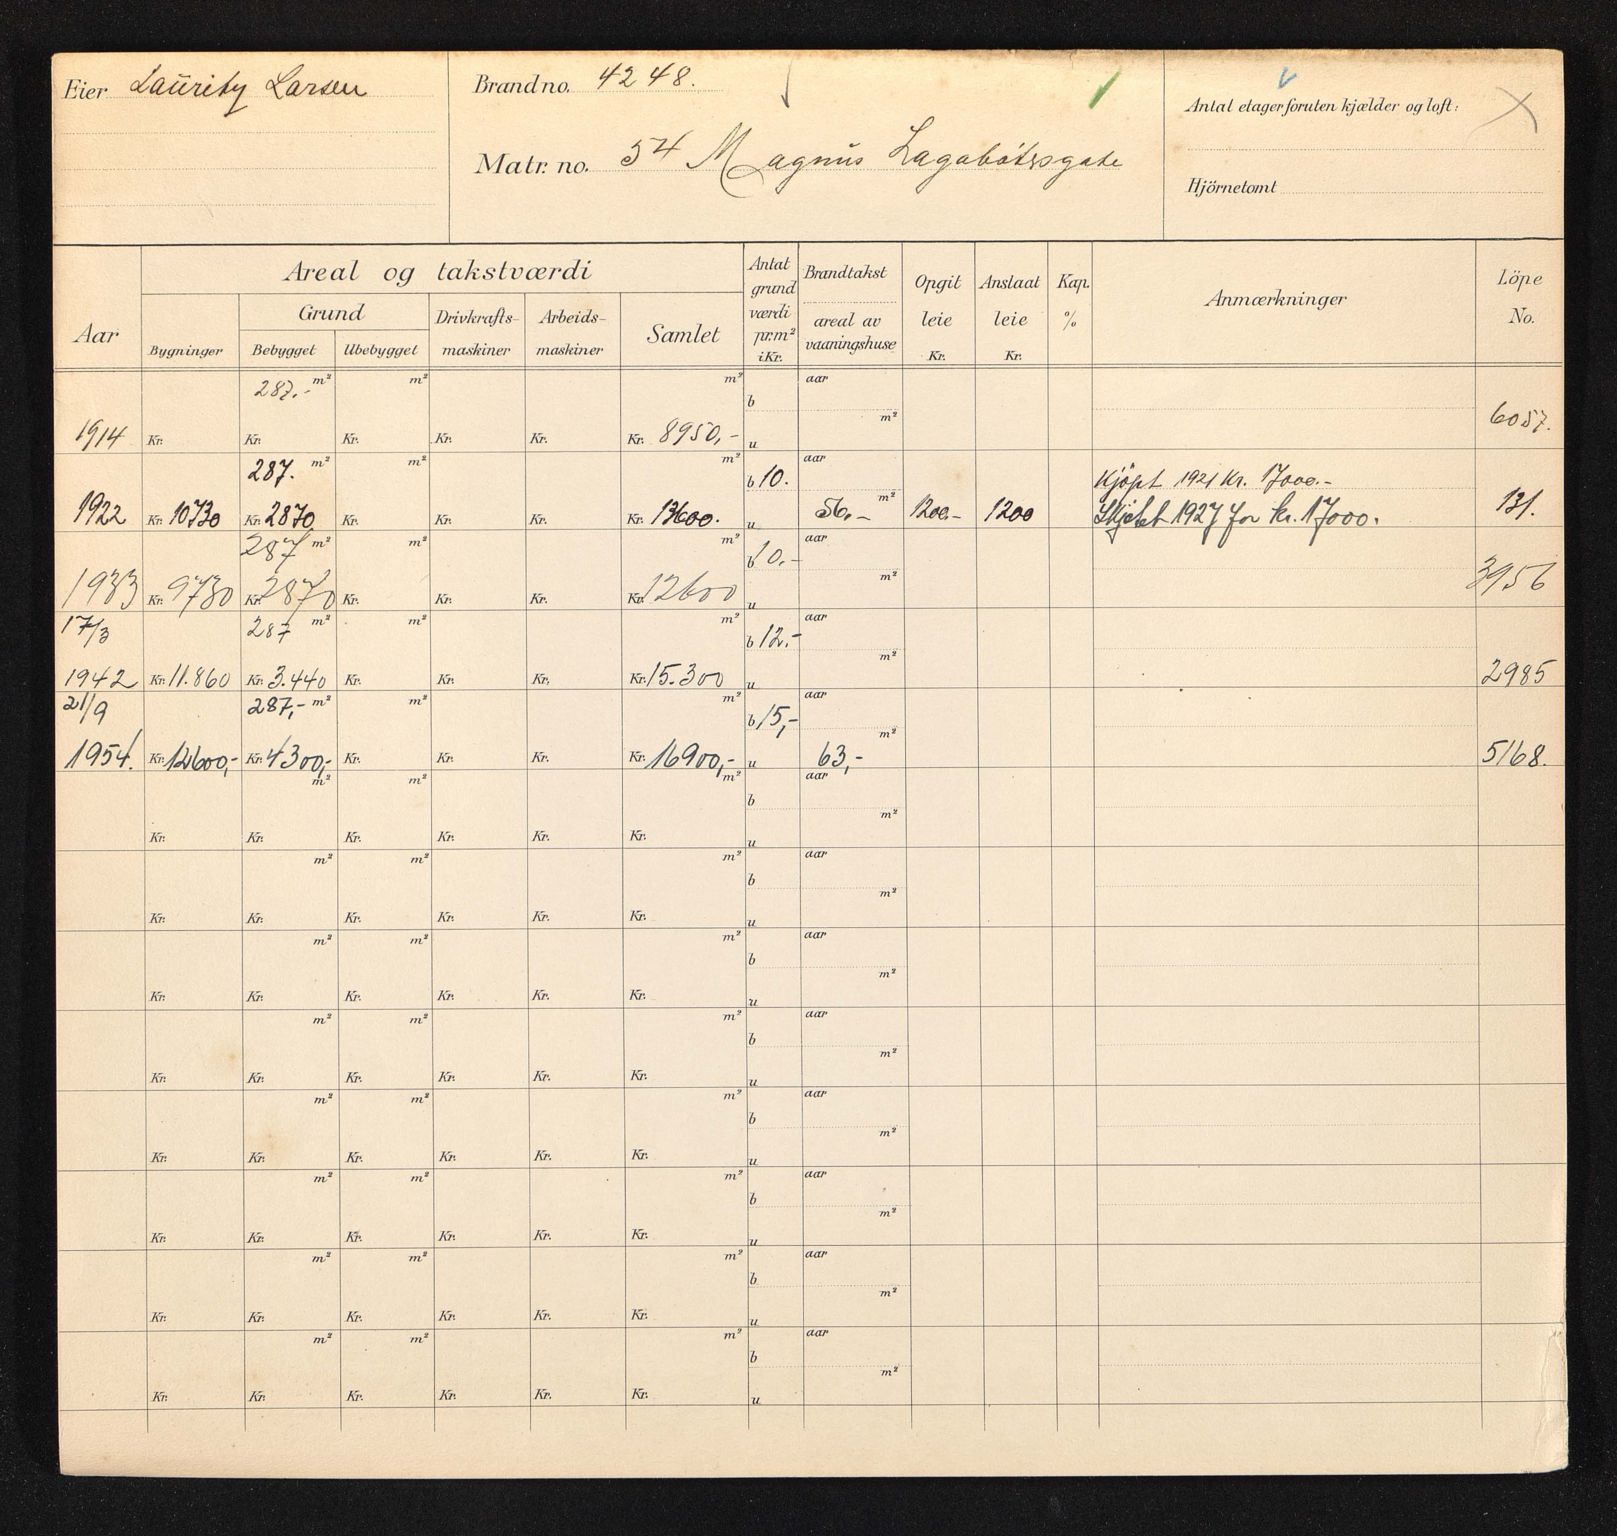 Eier Lauritz Larsen
Brand no. 4248.
Matr. no. 54 Magnus Lagabøtersgate
Antal etager foruten kjælder og loft:
Hjörnetomt
Areal og takstværdi
Aar
Bygninger
Grund
Bebygget
Ubebygget
Drivkrafts-
maskiner
Arbeids-
maskiner
Samlet
Antat
grund
værdi
pr. m²
i Kr.
Brandtakst
areal av
vaaningshuse
Opgit
leie
Kr.
Anslaat
leie
Kr.
Kap.
%
Anmærkninger
Löpe
No.
287.- m² m² m² aar
b
m²
1914 Kr. Kr. Kr. Kr. Kr. Kr. 8950,- u 6057.
287. m² m² m² aar
b 10. Kjöpt 1921 Kr. 17000.-
m²
1922 Kr. 10730 Kr. 2870 Kr. Kr. Kr. Kr. 13600. u 56.- 1200.- 1200 Skjötet 1927 for kr. 17000. 131.
287 m² m² m² aar
b 10.-
m²
1933 Kr. 9730 Kr. 2870 Kr. Kr. Kr. Kr. 12600 u 3956
17/3 287 m² m² m² aar
b 12.-
m²
1942 Kr. 11.860 Kr. 3.440 Kr. Kr. Kr. Kr. 15.300 u 2985
21/9 287,- m² m² m² aar
b 15,-
m²
1954. Kr. 12600,- Kr. 4300,- Kr. Kr. Kr. Kr. 16900,- u 63,- 5168.
m² m² m² aar
b
m²
Kr. Kr. Kr. Kr. Kr. Kr. u
m² m² m² aar
b
m²
Kr. Kr. Kr. Kr. Kr. Kr. u
m² m² m² aar
b
m²
Kr. Kr. Kr. Kr. Kr. Kr. u
m² m² m² aar
b
m²
Kr. Kr. Kr. Kr. Kr. Kr. u
m² m² m² aar
b
m²
Kr. Kr. Kr. Kr. Kr. Kr. u
m² m² m² aar
b
m²
Kr. Kr. Kr. Kr. Kr. Kr. u
m² m² m² aar
b
m²
Kr. Kr. Kr. Kr. Kr. Kr. u
m² m² m² aar
b
m²
Kr. Kr. Kr. Kr. Kr. Kr. u